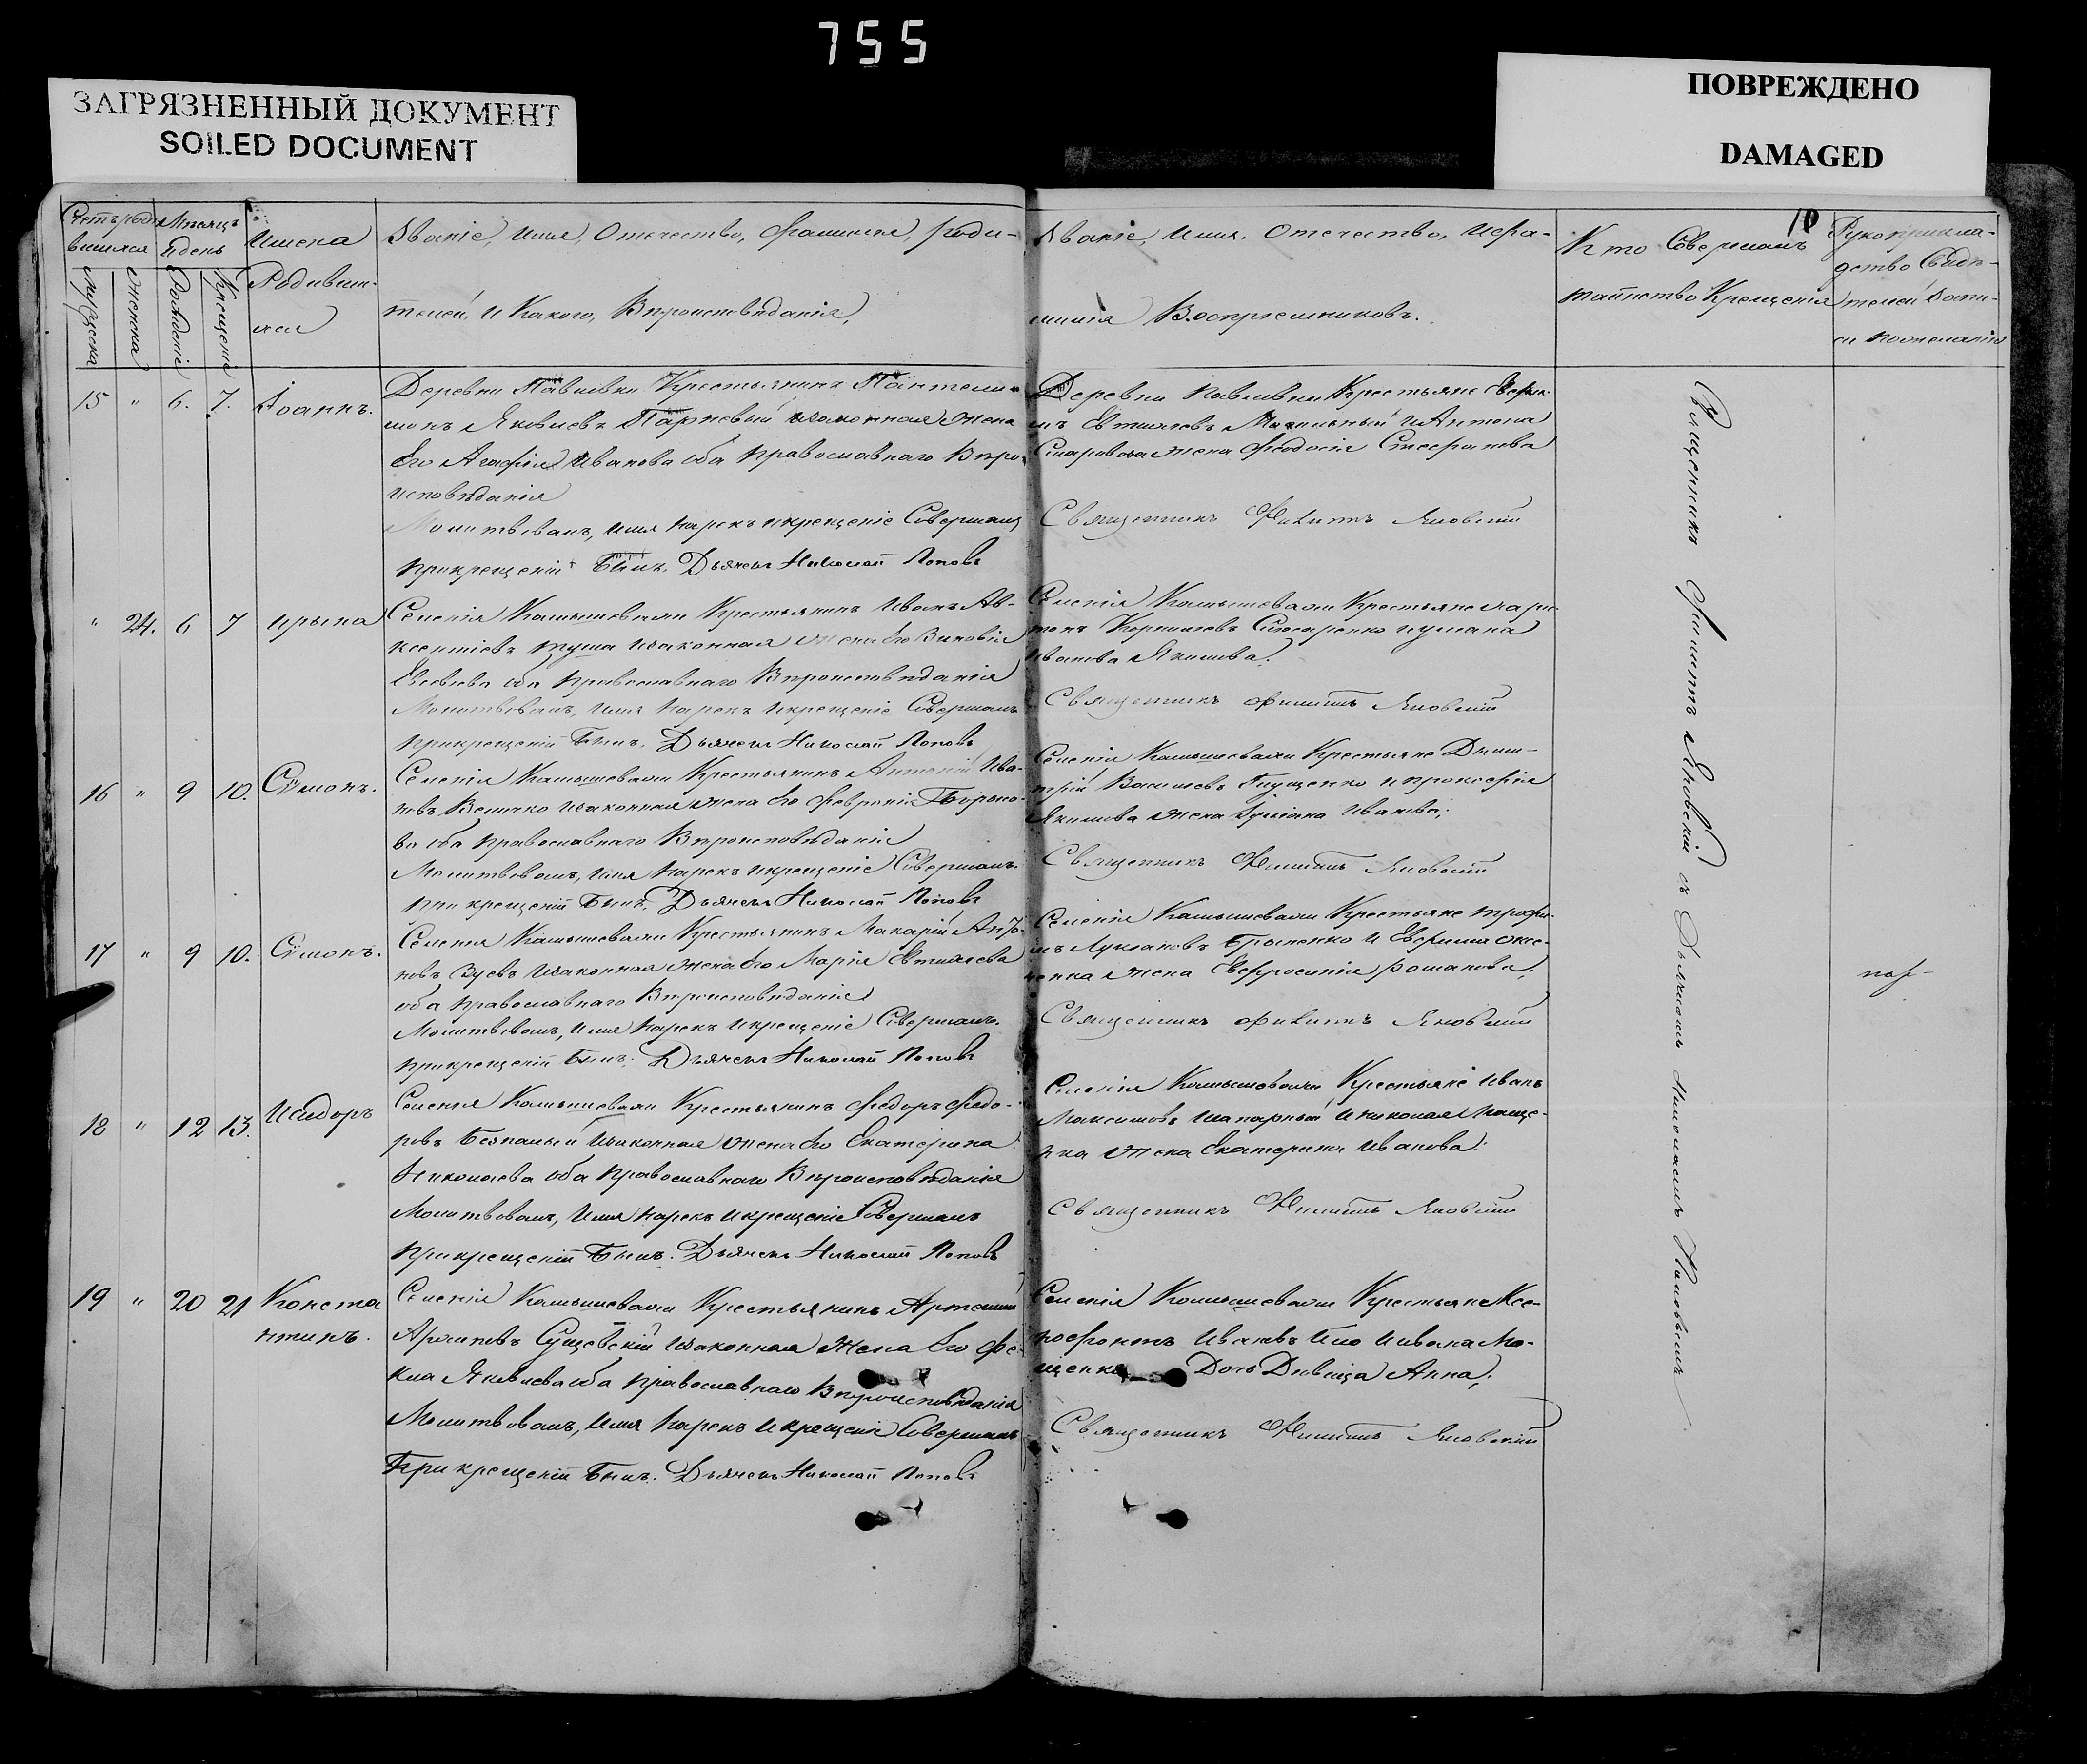 755
ЗАГРЯЗНЕННЫЙ ДОКУМЕНТ
SOILED DOCUMENT
ПОВРЕЖДЕНО
DAMAGED
10
Счетъ роди
вшихся
Мѣсяцъ
и день
Мужеска
Женска
Рожденіе
Крещеніе
Имена
Родивши-
яся
Званіе, Имя, Отечество, Фамилія, роди-
телей, и Какого, Вѣроисповѣданія,
Званіе, Имя, Отечество, и Фа-
милія Воспріемниковъ.
Кто Совершалъ
таинство Крещенія
Рукоприкла-
дство Свидѣ-
телей запи-
си по желанію
15 " 6. 7. Іоаннъ.
Деревни Павловки Крестьянинъ Пантели-
монъ Яковлевъ и законная жена
Его Агафія Иванова оба православнаго Вѣро-
исповѣданія
Молитвовалъ, имя нарекъ и крещеніе Совершалъ
при крещеніи Былъ. Дьячекъ Николай Поповъ
Деревни Павловки Крестьяне
Евтихіевъ и Антона
жена Феодосія Стефанова
Священникъ Филиппъ Яновскій
" 24. 6 7 Ирына
Селенія Камышевахи Крестьянинъ Иванъ Ав-
ксентіевъ и законная жена Его
оба православнаго Вѣроисповѣданія
Молитвовалъ, имя нарекъ и крещеніе Совершалъ
при крещеніи Былъ. Дьячекъ Николай Поповъ
Селенія Камышевахи Крестьяне Хари-
тонъ Корниловъ Слюсаренко
Иванова Якимова.
Священникъ Филиппъ Яновскій
16 " 9 10. Сѵмонъ.
Селенія Камышевахи Крестьянинъ Антоній Ива-
новъ Величко и законная жена Его Февронія
ва оба православнаго Вѣроисповѣданія
Молитвовалъ, имя нарекъ и крещеніе Совершалъ.
при крещеніи Былъ. Дьячекъ Николай Поповъ
Селенія Камышевахи Крестьяне Дими-
трій Васильевъ Грищенко и
Якимова жена Иванова.
Священникъ Филиппъ Яновскій
17 " 9 10. Сѵмонъ.
Селенія Камышевахи Крестьянинъ Макарій
новъ Зуевъ и законная жена Его Марія Евтихіева
оба православнаго Вѣроисповѣданія
Молитвовалъ, имя нарекъ и крещеніе Совершалъ.
при крещеніи Былъ. Дьячекъ Николай Поповъ
Селенія Камышевахи Крестьяне Трофи-
мъ Лукьяновъ и Ефрима
жена Евфросинія Романова.
Священникъ Филиппъ Яновскій
18 " 12 13. Исидоръ
Селенія Камышевахи Крестьянинъ Федоръ Федо-
ровъ Безпалый и законная жена Его Екатерина
Николаева оба православнаго Вѣроисповѣданія
Молитвовалъ, имя нарекъ и крещеніе Совершалъ
при крещеніи Былъ. Дьячекъ Николай Поповъ
Селенія Камышевахи Крестьяне Иванъ
Максимовъ Шапарный и Николая Моще-
нка жена Екатерина Иванова.
Священникъ Филиппъ Яновскій
19 " 20 21 Конста
нтинъ.
Селенія Камышевахи Крестьянинъ Артемій
Архиповъ Сущевскій и законная жена Его Фе-
кла Яковлева оба православнаго Вѣроисповѣданія
Молитвовалъ, имя нарекъ и крещеніе Совершалъ
При крещеніи Былъ. Дьячекъ Николай Поповъ
Селенія Камышевахи Крестьяне Ксе-
нофонтъ Ивановъ и Ивана Мо-
щенка Дочь Дѣвица Анна.
Священникъ Филиппъ Яновскій
Священникъ Филиппъ Яновскій съ Дьячкомъ Николаемъ Поповымъ